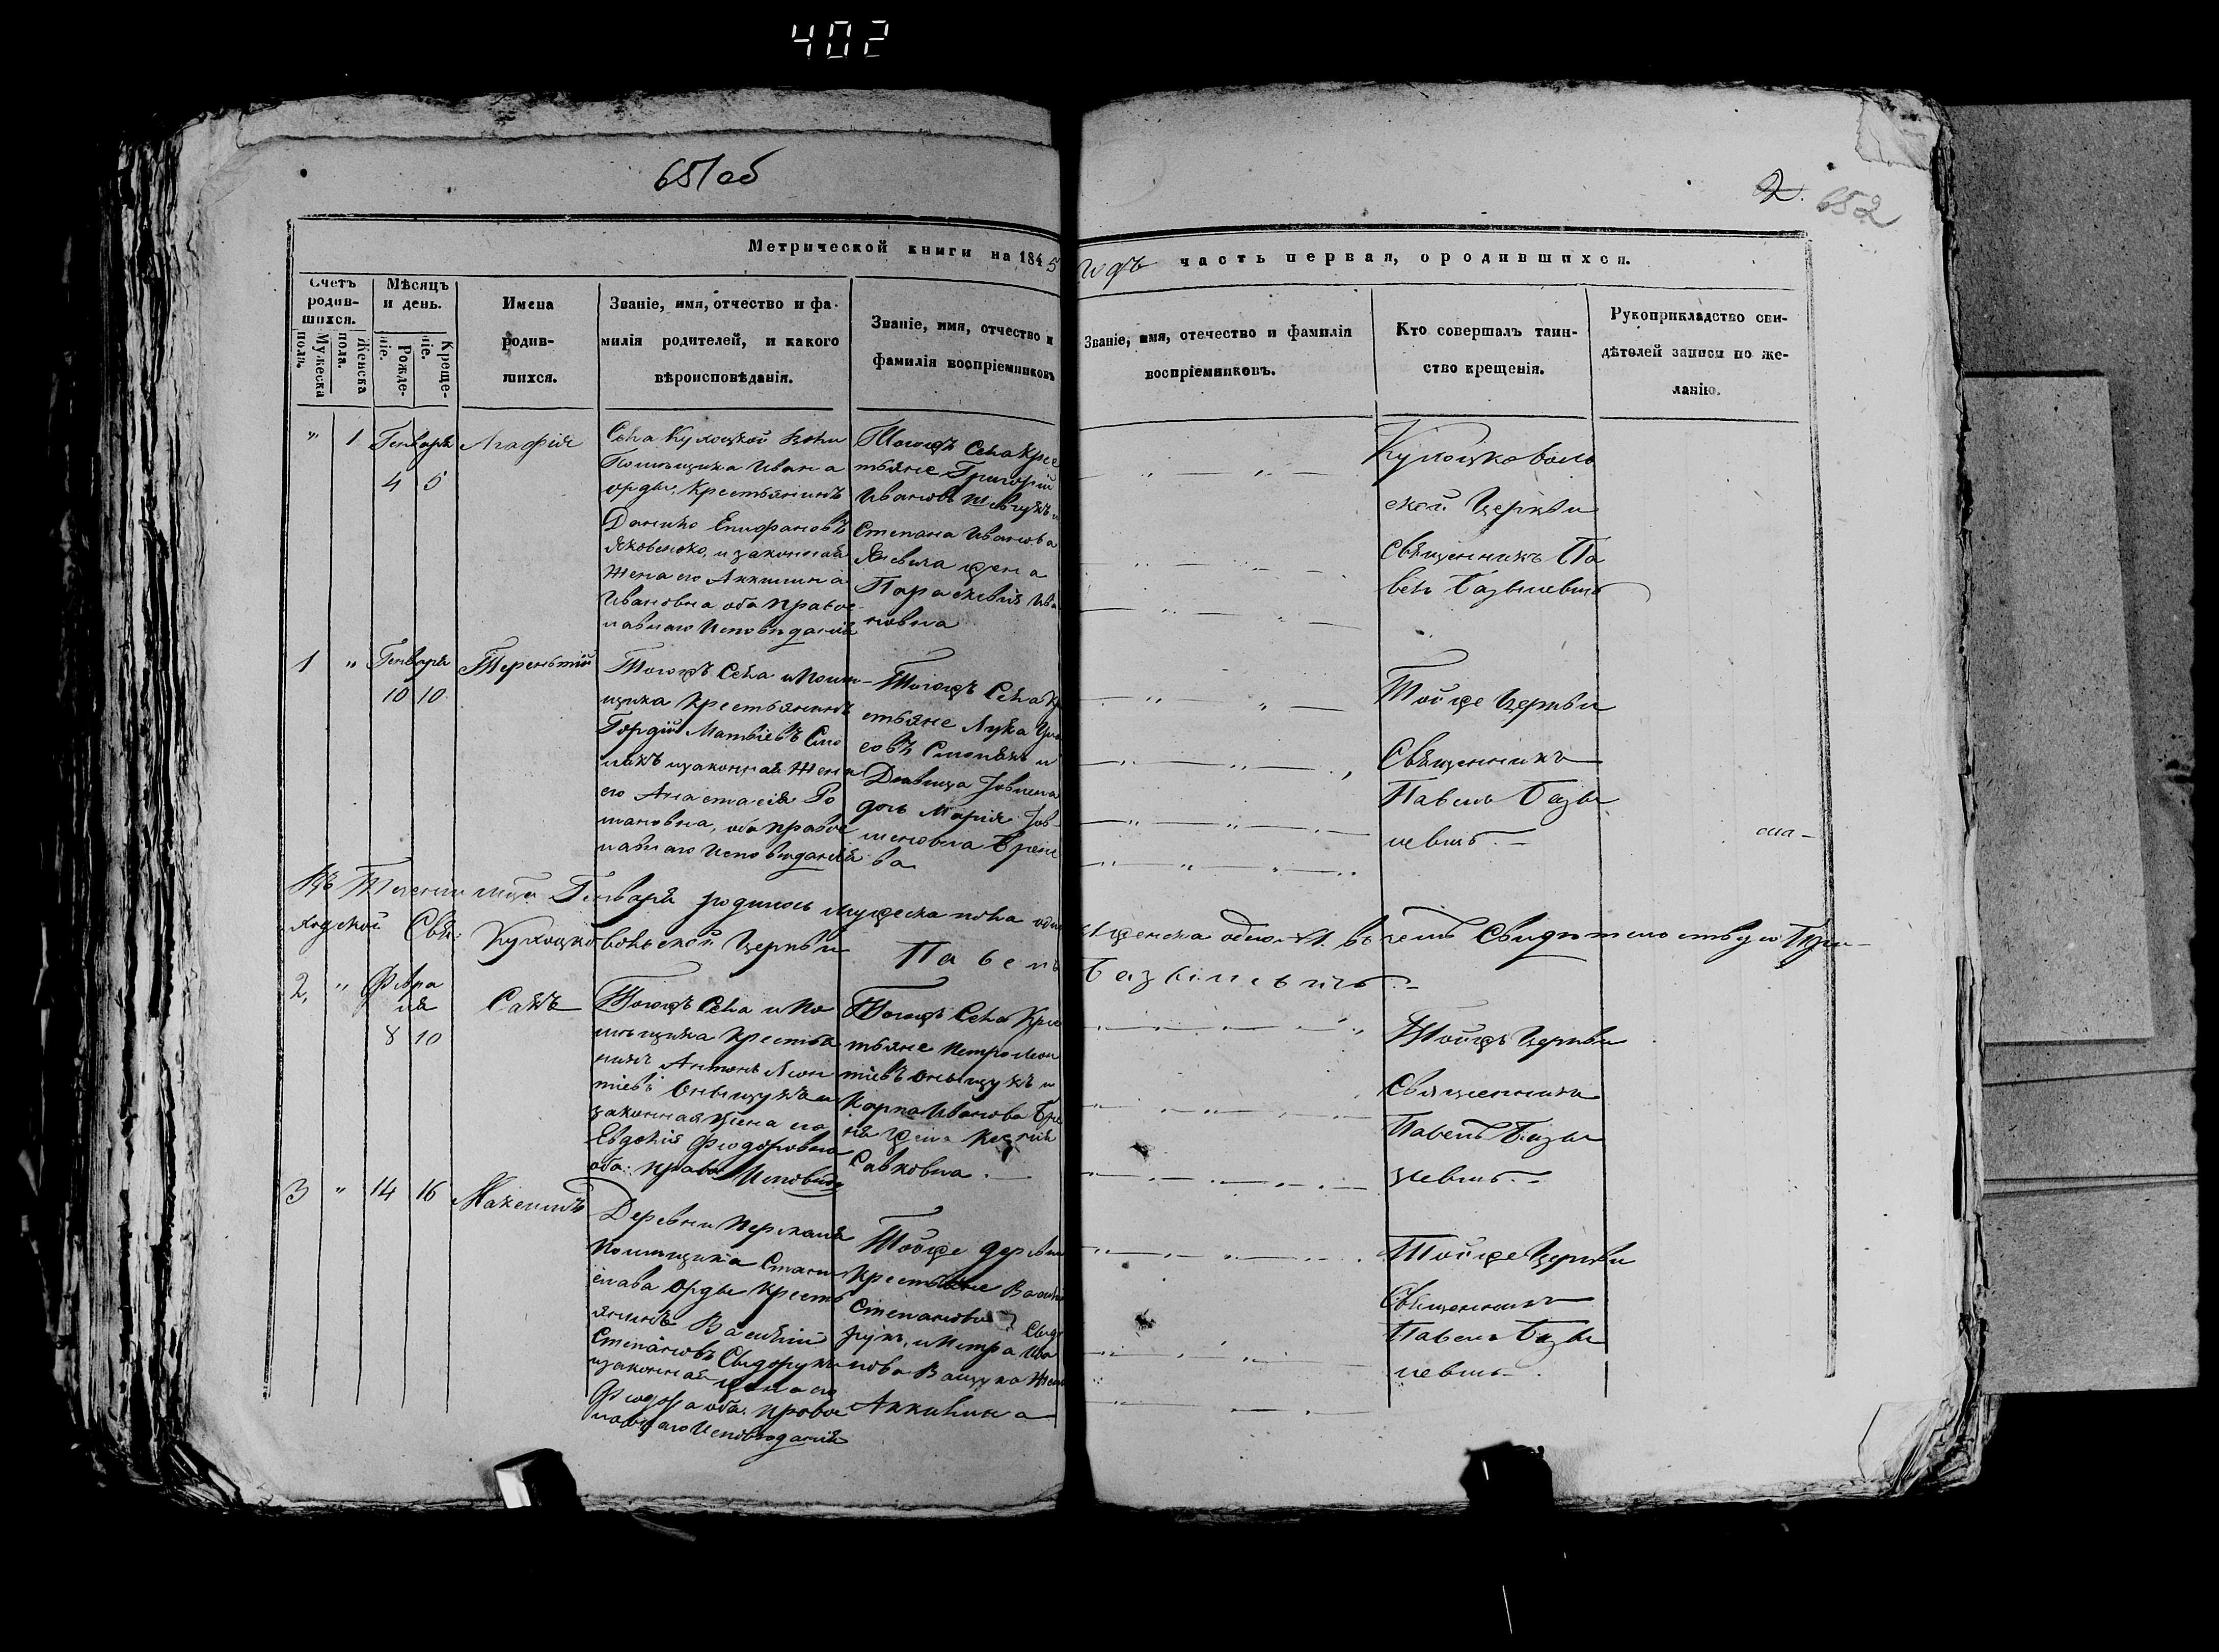 402
651об
2.
652
Метрической книги на 1845
годъ часть первая, ородившихся.
Счетъ родив-
шихся.
Мужеска пола.
Женска пола.
Мѣсяцъ и день.
Рожде-
ніе.
Креще-
ніе.
Имена
родив-
шихся.
Званіе, имя, отчество и фа-
милія родителей, и какого
вѣроисповѣданія.
Званіе, имя, отчество и
фамилія воспріемниковъ
Званіе, имя, отечество и фамилія
воспріемниковъ.
Кто совершалъ таин-
ство крещенія.
Рукоприкладство сви-
дѣтелей записи по же-
ланію.
" 1 Генваря
4 5
Агафія
Села Кухоцкой Воли
Помѣщика Ивана
орды, Крестьянинъ
Данило Епифановъ
Яковенко, и законная
Жена его Аккилина
Ивановна оба православнаго Исповѣданія
Тогожъ Села Крес
тьяне Григорій
Ивановъ Шевчукъ и
Степана Иванова
жена
Параскевія Ива
новна
Кухоцковоль
ской Церкви
Священникъ Па
велъ Базылевичъ
1 " Генваря
10 10
Терентій
Тогожъ Села и Помѣ-
щика Крестьянинъ
Гордій Матвіевъ
и законная Жена
его Анастасія Ро
мановна, оба правос
лавнаго Исповѣданія
Тогожъ Села Кр
естьяне Лука
и
Девица
дочь Марія
Тойже Церкви
Священникъ
Павелъ Базы
левичъ.
Въ Теченіи мѣсца Генваря родилось мужеска пола одинъ
и женска одно №1. въ чемъ Свидѣтельствую При-
ходской Свящ: Кухоцковольской Церкви Павелъ
Базылевичъ.
2, " Февра
ля
8 10
Савъ
Тогожъ Села и По
мѣщика Крестья
нинъ Антонъ Леон
тіевъ Онищукъ и
законная жена его
Евдокія Феодоровна
оба: право Исповѣд
Тогожъ Села Крес
тьяне Петро Леон
тіевъ Онищукъ и
Карпа Иванова
жена
Савковна.
Тойжъ Церкви
Священникъ
Павелъ Базы
левичъ.
3 " 14 16
Максимъ
Деревни
Помѣщика Стани
слава Орды Кресть
янинъ Василій
Степановъ Сидорукъ
и законная жена его
Феодора оба: правос
лавнаго Исповѣданія
Тойже деревни
Крестьяне
Степановъ Сидо
рукъ, и Петра Ива
нова Ващука Жена
Аккилина
Тойже Церкви
Священникъ
Павелъ Базы
левичъ.